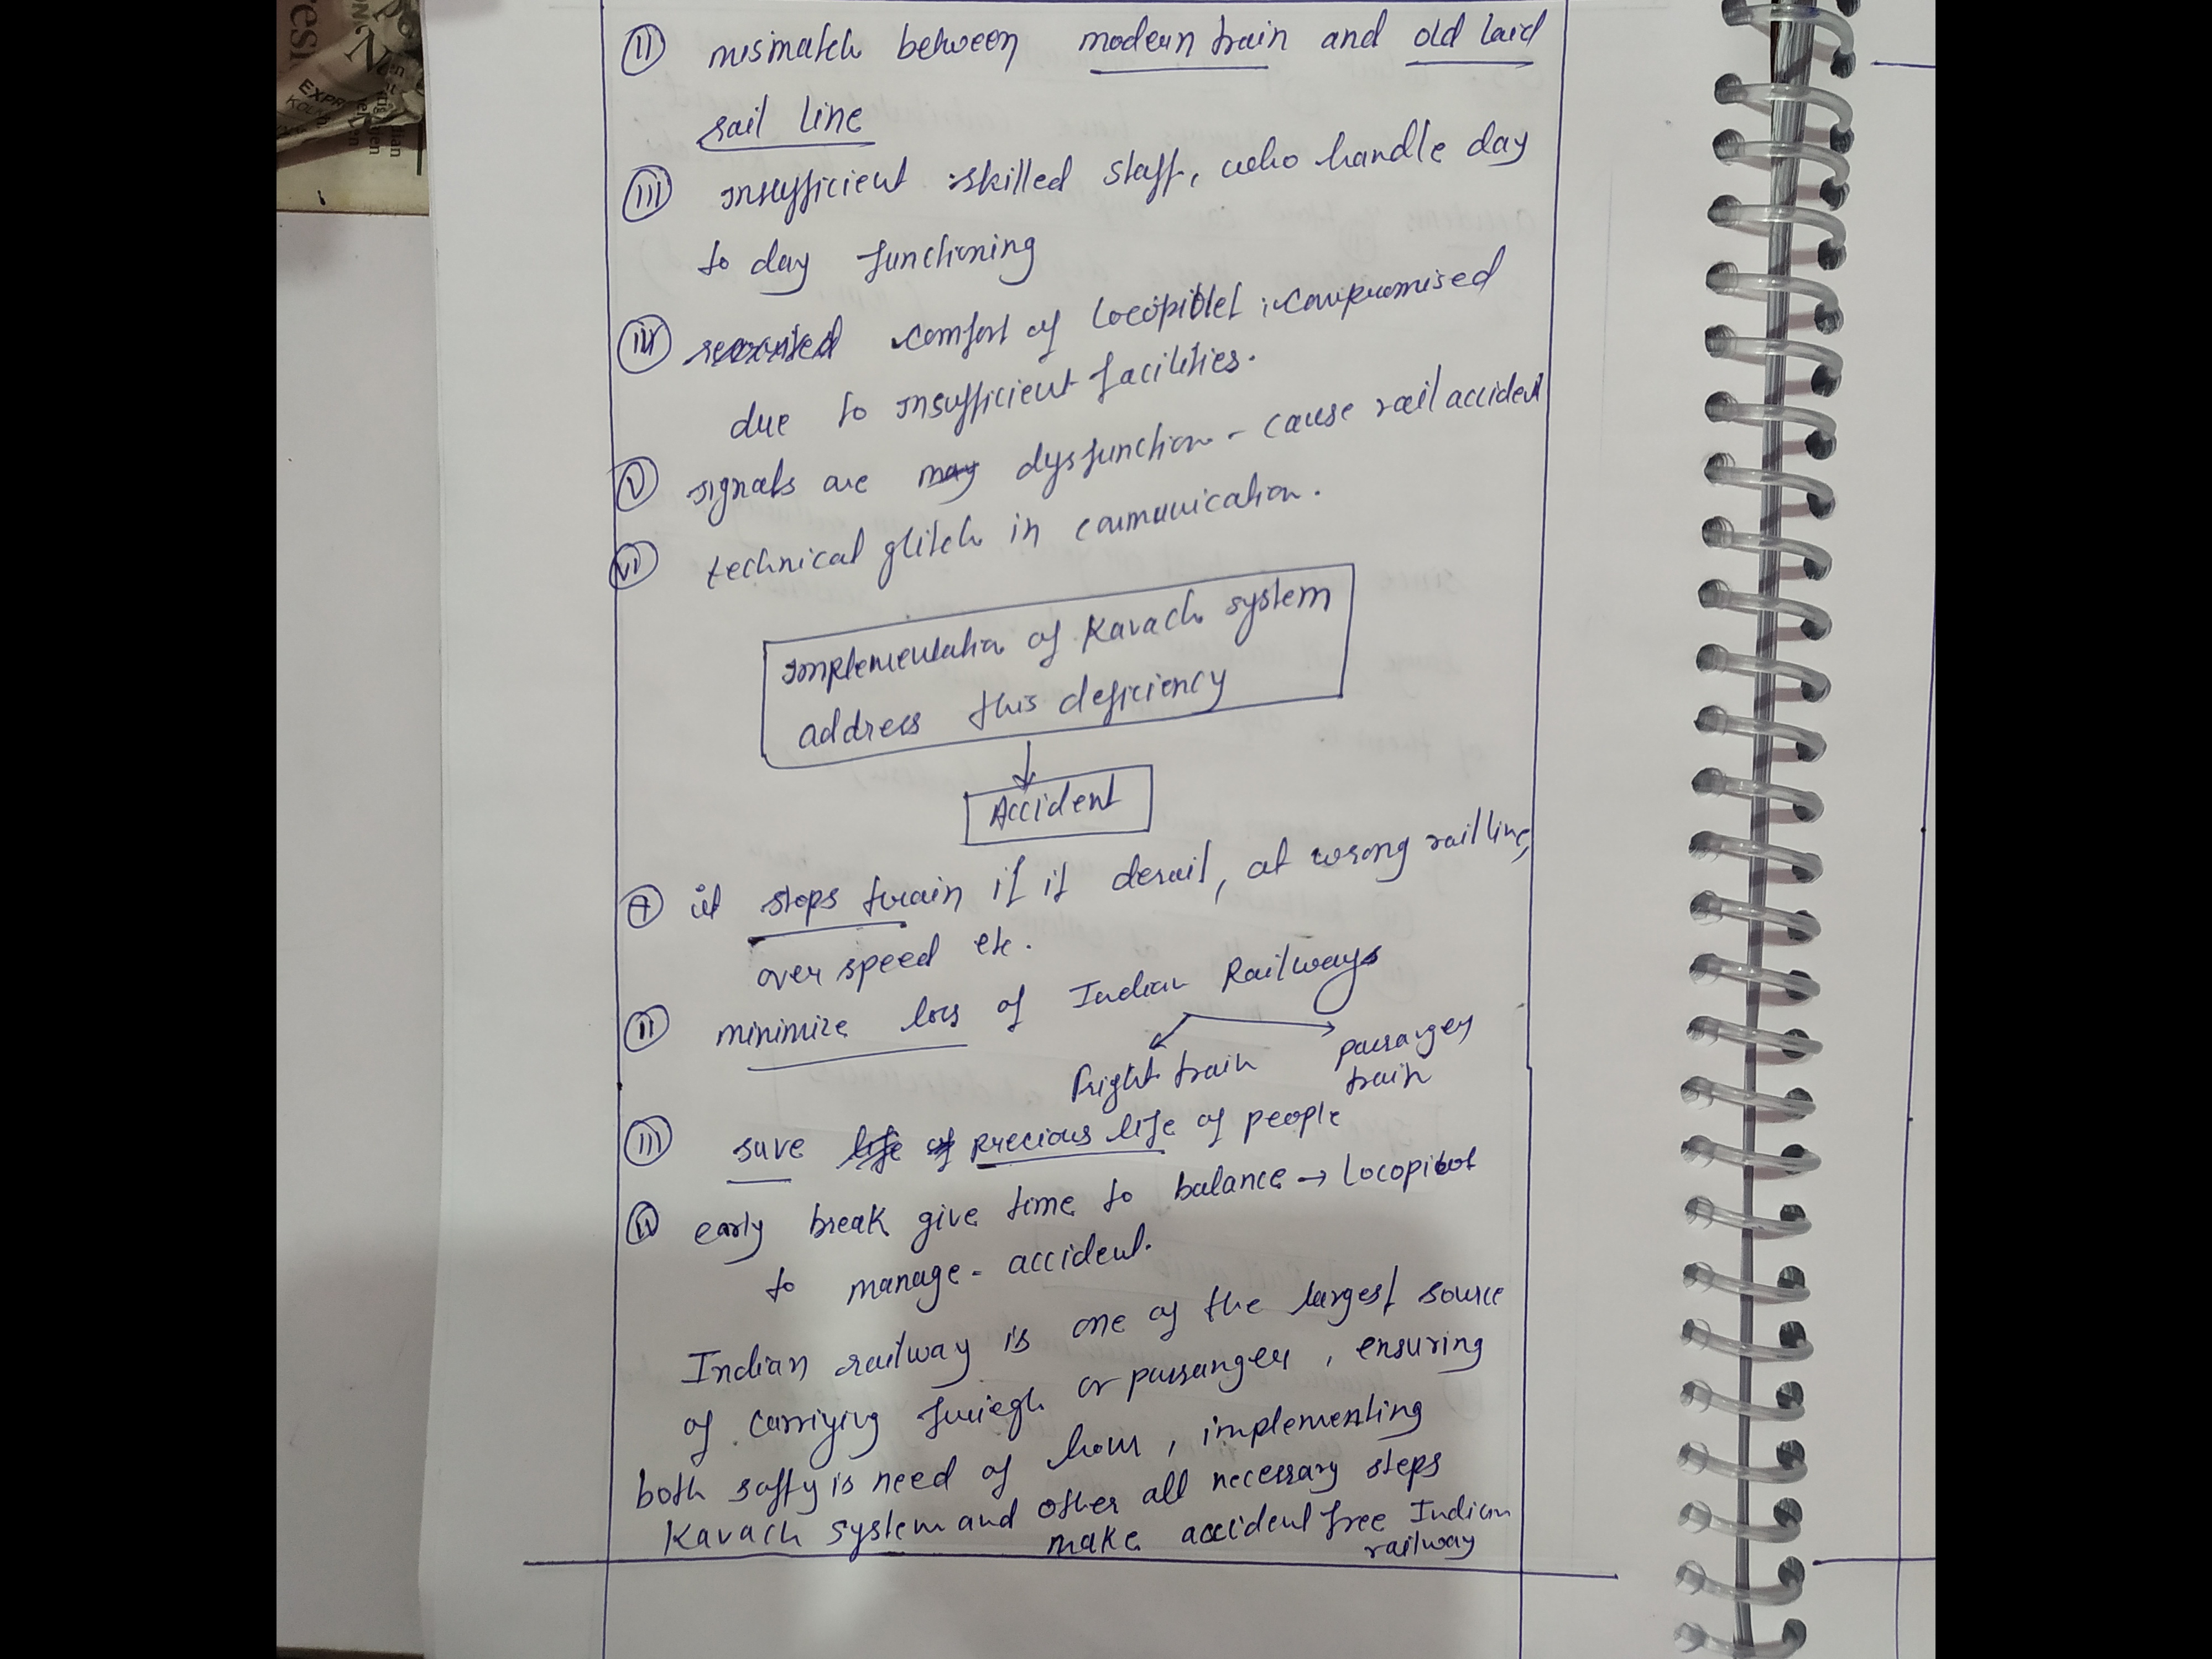 (II) mismatch between modern train and old laid
rail line
(III) Insufficient skilled staff, who handle day
to day functioning
(IV) comfort of locopilot compromised
due to insufficient facilities.
(V) signals are may dysfunction - cause rail accident
(VI) technical glitch in communication.
Implementation of Kavach system
address this deficiency
Accident
(I) it stops train if it derail, at wrong rail line,
over speed etc.
(II) minimize loss of Indian Railways
fright train
passanger
train
(III) save life of precious life of people
(IV) early break give time to balance → Locopilot
to manage - accident.
Indian railway is one of the largest source
of carriying or passanger, ensuring
both safty is need of hour, implementing
Kavach system and other all necessary steps
make accident free Indian
railway
EXPR
KOL